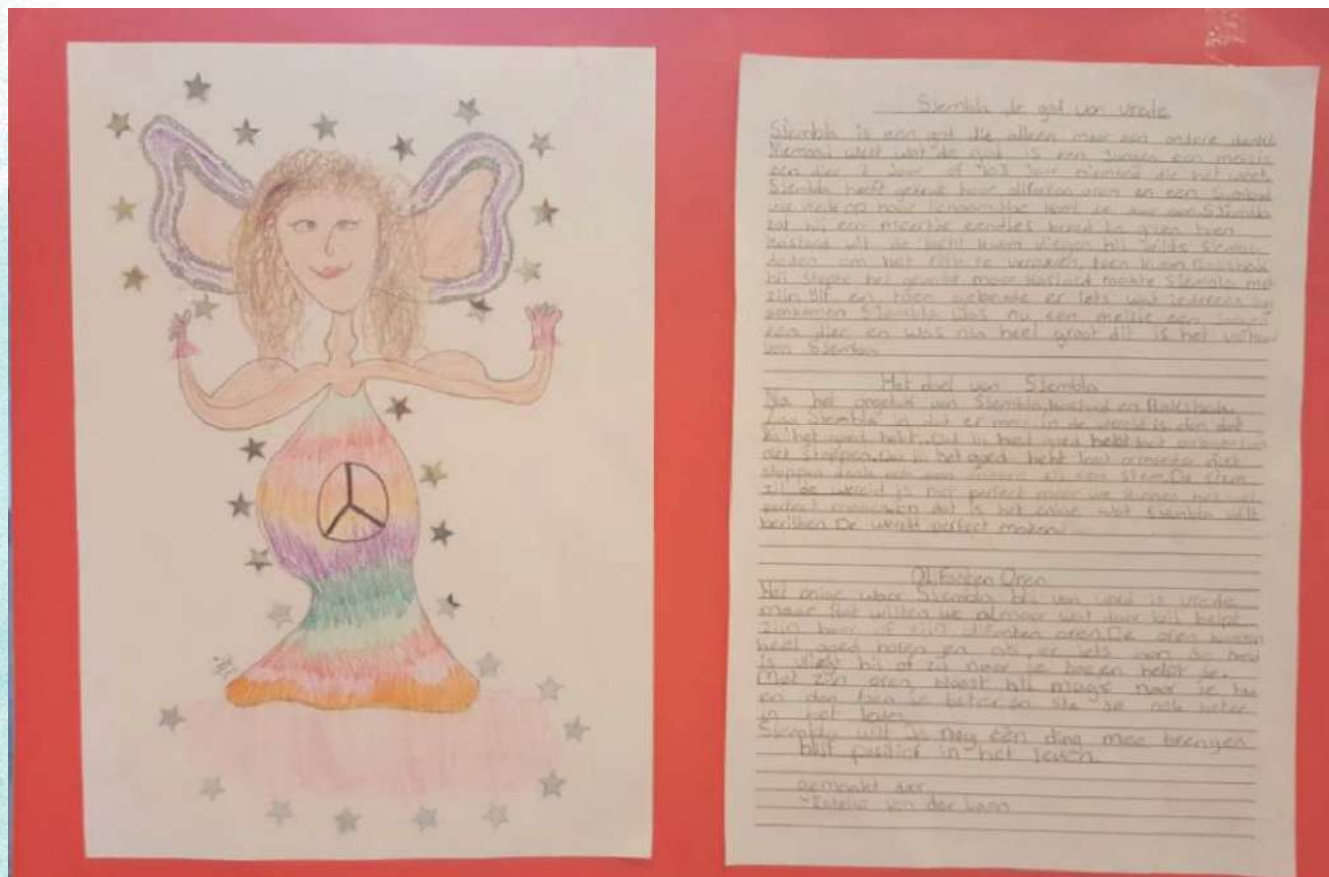 Sjembla de god van vrede
Sjembla is een god die alleen maar aan andere denkt
Niemand weet wat de god is een jongen een meisje
een dier 2 jaar of jaar niemand die het weet.
Sjembla heeft gekruld haar olifanten oren en een symbool
van vrede op haar lichaam. Hoe komt ze aan Sjembla
zat bij een meertje eendjes brood te geven toen
uit de lucht kwam vliegen hij wilde Sjembla
doden om het te toen kwam
hij stopte het gevecht maar raakte Sjembla met
zijn gif en toen gebeurde er iets wat iedereen
Sjembla was nu een meisje een jongen
een dier en was nu heel groot dit is het verhaal
van Sjembla
Het doel van Sjembla
Na het ongeluk van Sjembla, en
Sjembla in dat er meer in de wereld is dan dat
jij het goed hebt. Dat jij heel goed hebt laat
niet stoppen. Dat jij het goed hebt laat armoede niet
stoppen denk ook aan andere als een stem. De stem
zij de wereld is niet perfect maar we kunnen het wel
perfect maken en dat is het enige wat Sjembla wilt
bereiken De wereld perfect maken.
Olifanten Oren
Het enige waar Sjembla blij van word is vrede
maar dat willen we almaar wat daar bij helpt
zijn haar of zijn olifanten oren. De oren kunnen
heel goed horen en als er iets aan de hand
is vliegt hij of zij naar je toe en helpt je.
Met zijn oren blaast hij magie naar je toe
en dan ben je beter en sta je ook beter
in het leven.
Sjembla wilt je nog één ding mee brengen
blijf positief in het leven.
gemaakt door
van der Laan